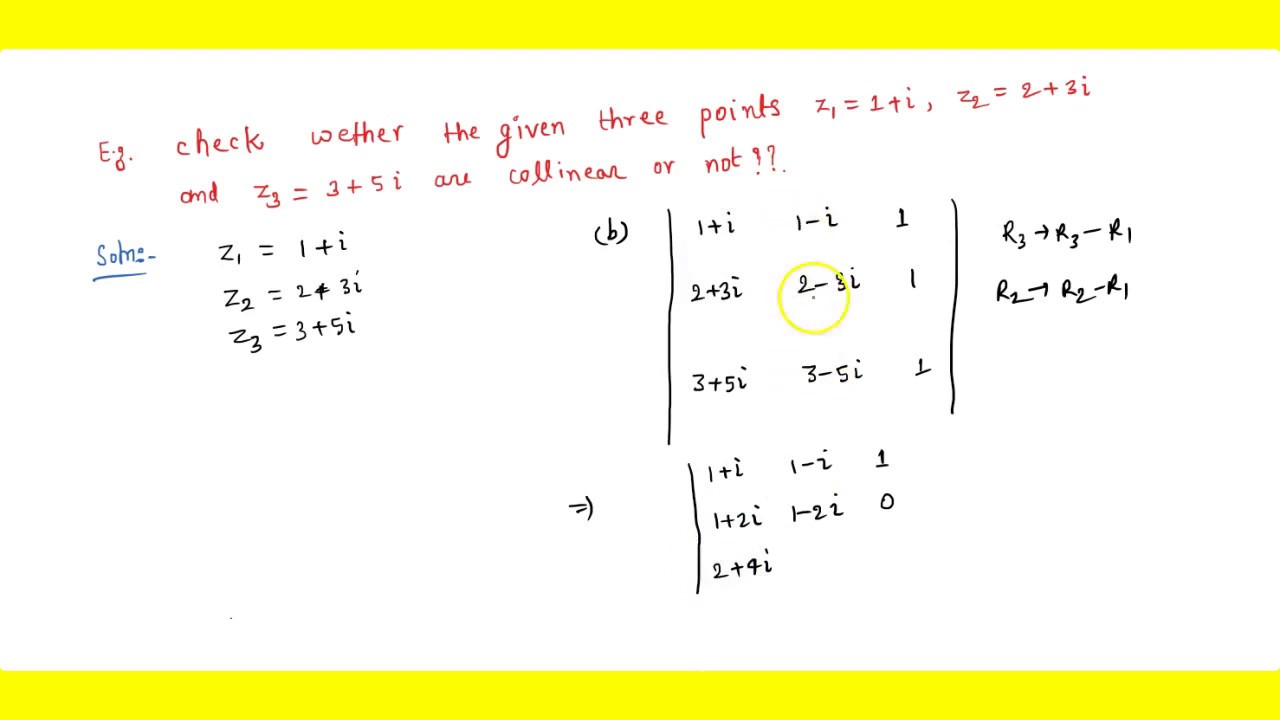 E.g. check wether the given three points z₁ = 1+i, z₂ = 2+3i
and z₃ = 3+5i are collinear or not??.
Soln:-
z₁ = 1+i
z₂ = 2+3i
z₃ = 3+5i
(b)
1+i 1-i 1
2+3i 2-3i 1
3+5i 3-5i 1
R₃→R₃-R₁
R₂→R₂-R₁
⇒
1+i 1-i 1
1+2i 1-2i 0
2+4i